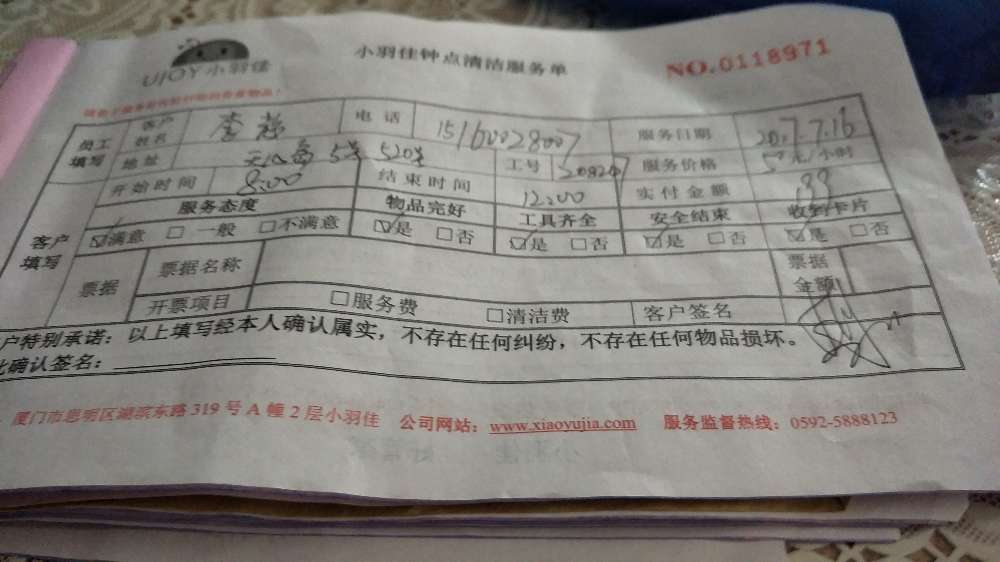 UJOY小羽佳
小羽佳钟点清洁服务单
NO.0118971
员工填写 客户姓名 李 电话 15160028007 服务日期 2017.7.16
地址 5号 520室 工号 服务价格 50元/小时
开始时间 8:00 结束时间 12:00 实付金额 99
客户填写 服务态度 物品完好 工具齐全 安全结束 收到卡片
☑满意 □一般 □不满意 ☑是 □否 ☑是 □否 ☑是 □否 ☑是 □否
票据 票据名称 票据金额
开票项目 □服务费 □清洁费 客户签名
户特别承诺：以上填写经本人确认属实，不存在任何纠纷，不存在任何物品损坏。
此确认签名：
厦门市思明区湖滨东路319号A幢2层小羽佳 公司网站：www.xiaoyujia.com 服务监督热线：0592-5888123